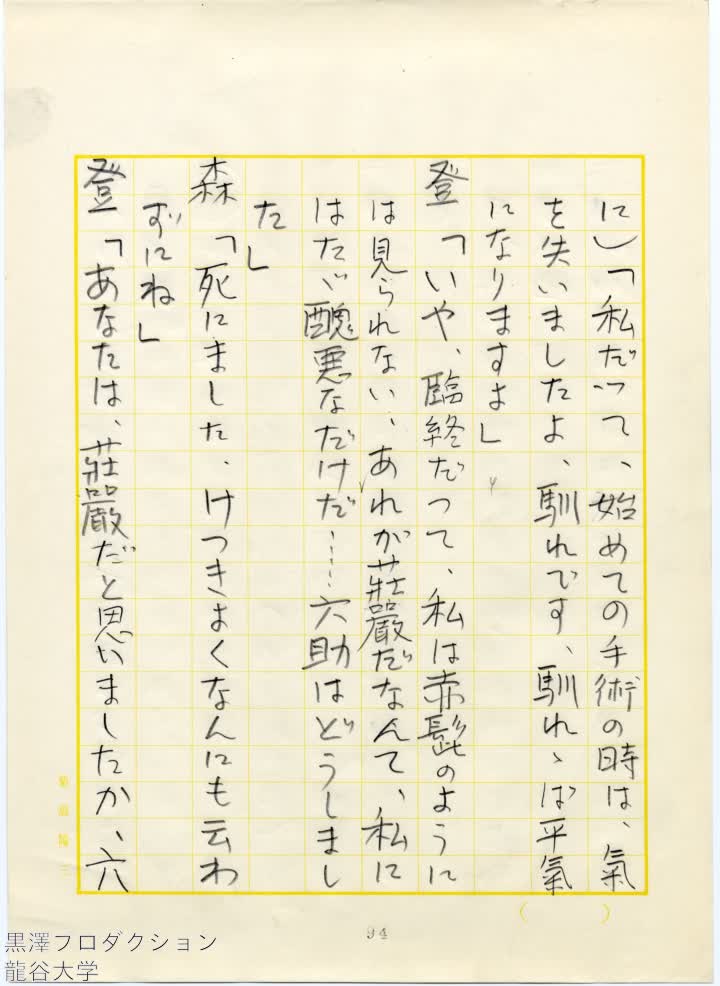 に）「私だって、始めての手術の時は、氣
を失いましたよ、馴れです、馴れゝば平氣
になりますよ」
登「いや、臨終だって、私は赤髭のように
は見られない、あれが荘厳だなんて、私に
はたゞ醜悪なだけだ……六助はどうしまし
た」
森「死にました、けつきよくなんにも云わ
ずにね」
登「あなたは、荘厳だと思いましたか、六
94
黒澤プロダクション
龍谷大学